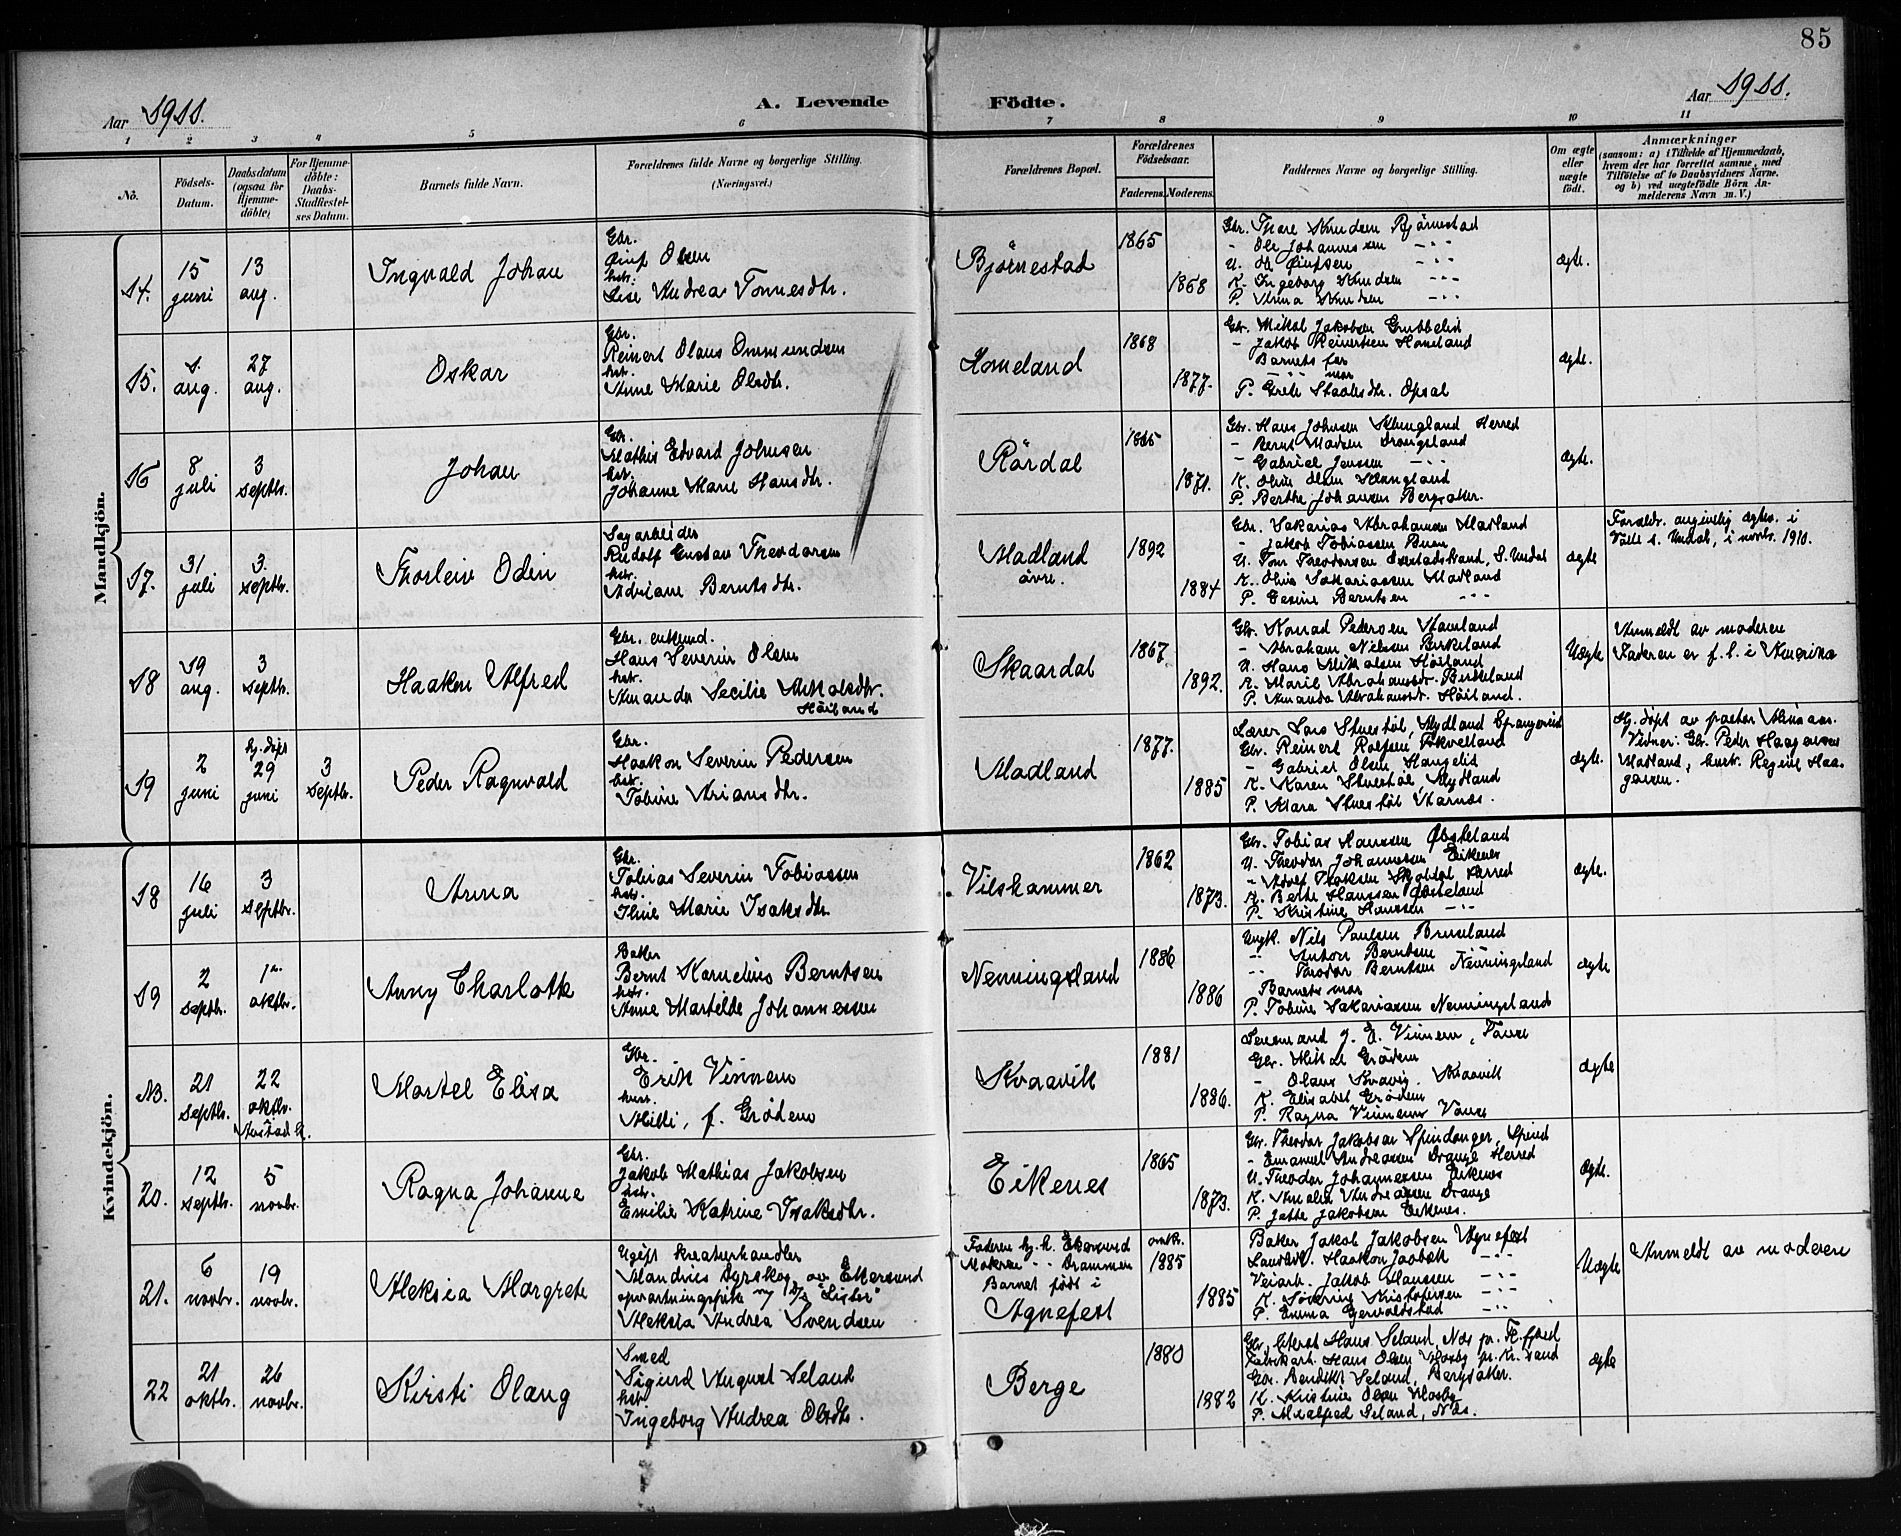 85
Aar 1911.
A. Levende
Födte.
Aar 1911.
1 2 3 4 5 6 7 8 9 10 11
No.
Födsels-Datum.
Daabsdatum (ogsaa for Hjemmedöbte)
For Hjemmedöbte: Daabs-Stadfæstelses Datum.
Barnets fulde Navn.
Forældrenes fulde Navne og borgerlige Stilling. (Næringsvei.)
Forældrenes Bopæl.
Forældrenes Födselsaar.
Faderens. Moderens.
Faddernes Navne og borgerlige Stilling.
Om ægte eller uægte födt.
Anmærkninger
(saasom: a) i Tilfælde af Hjemmedaab, hvem der har forrettet samme, med Tilföielse af to Daabsvidners Navne, og b) ved uægtefödte Börn Anmelderens Navn m. V.)
Mandkjön.
14.
15 juni
13 aug.
Ingvald Johan
Gbr.
Olsen
hstr.
Lise Andrea Tonnesdtr.
Bjørnestad
1865
1868
Gbr. Thore Knudsen Bjørnestad
- Ole Johannessen -"-
K. Ingeborg Knudsen -"-
P. Anna Knudsen -"-
ægte.
15.
1. aug.
27 aug.
Oskar
Gbr.
Reinert Olaus Ommundsen
hstr.
Anne Marie Olsdtr.
Homeland
1868
1877.
Gbr. Mikal Jakobsen Grubbelid
- Jakob Reinertsen Homeland
Barnets far
-"- mor
P. Grete Opsal
ægte.
16
8 juli
3 septbr.
Johan
Gbr.
Mathis Edvard Johnsen
hstr.
Johanne Marie Hansdtr.
Rørdal
1865
1871.
Gbr. Hans Johnsen Herred
- Bernt Madsen Drangeland
- Gabriel Jenssen -"-
K. Olsen
P. Berthe Johansen Bergsaker.
ægte.
17.
31 juli
3. septbr.
Thorleiv Odin
Sagarbeider
Rudolf Gustav Theodorsen
hstr.
Adriane Berntsdtr.
Madland
øvre.
1892
1884
Gbr. Sakarias Abrahamsen Madland
- Jakob Tobiassen Buan
U. Tom Theodorsen S. Undal
K. Olive Sakariassen Madland
P. Gesine Berntsen -"-
ægte
Foreldr. angivelig ægtev. i
Valle s. Undal, i novbr. 1910.
18
19 aug.
3 septbr.
Haakon Alfred
Gbr. enkemd.
Hans Severin Olsen
hstr.
Amanda Secilie
Høiland
Skaardal
1867
1892.
Gbr. Konrad Pedersen Stamland
- Abraham Nilsen Birkeland
U. Hans Høiland
K. Marie Abrahamsdr. Birkeland
P. Amanda Abrahamsdr. Høiland.
Uægte
Anmeldt av moderen
Faderen er f. t. i Amerika
19
2 juni
hj. døpt 29 juni
3 septbr.
Peder Ragnvald
Gbr.
Haakon Severin Pedersen
hstr.
Tobine Ariansdtr.
Madland
1877.
1885
Lærer Lars Stuestøl, Mydland
Gbr. Reinert Rolfsen
- Gabriel Olsen
K. Karen Stuestøl, Mydland
P. Mara Stuestøl
ægte.
Hj. døpt av pastor
Vidner: Gbr. Peder Haagensen
Madland, hustr. Regine Haa-
gensen.
Kvindekjön.
18
16 juli
3 septbr.
Anna
Gbr.
Tobias Severin Tobiassen
hstr.
Thine Marie Isaksdtr.
Vilskammer
1862
1873.
Gbr. Tobias Hanssen
U. Theodor Johannessen Eikenes
- Adolf Isaksen Herred
K. Berthe Hanssen
P. Kristine Hanssen -"-
ægte.
19
2 septbr.
1ste oktbr.
Anny Charlotte
Baker
Bernt Kornelius Berntsen
hstr.
Anne Martilde Johannessen
Nenningsland
1886
1886
Ungk. Nils Paulsen Bruseland
-"- Anton Berntsen
-"- Theodor Berntsen Nenningsland
Barnets mor
P. Tobine Sakariassen Nenningsland
ægte
No.
21 septbr.
22 oktbr.
Austad k.
Martel Elisa
Gbr.
Erik Vinnem
hust.
Milli, f. Grødem
Kvaavik
1881
1886.
Lensmand J. E. Vinnem,
Gbr. Grødem
- Olaus Kvavig, Kvaavik
K. Elisabet Grødem
P. Ragna Vinnem
ægte
20.
12 septbr.
5 novbr.
Ragna Johanne
Gbr.
Jakob Mathias Jakobsen
hstr.
Emilie Katrine Isaksdtr.
Eikenes
1865
1873.
Gbr. Theodor Jakobsen Spindanger, Spind
- Emanuel Andreassen Drange Herred
U. Theodor Johannessen Eikenes
K. Amalia Andreassen Drange
P. Jette Jakobsen Eikenes.
ægte.
21.
6 novbr.
19 novbr.
Aleksia Margrete
Ugift kreaturhandler
Mandius Dyrskog av Ekersund
opvartningspike "Lister"
Aleksia Andrea Svendsen
Faderen hj. h. Ekersund
Moderen -"- Drammen
Barnet født i
Agnefest
omkr. 1885
1885
Baker Jakob Jakobsen Agnefest
Landh. Haakon -"-
Veiarb. Jakob Hanssen -"-
K. Sørine Kristofersen -"-
P. Emma -"-
Uægte
Anmeldt av moderen
22
21 oktbr.
26 novbr.
Kirsti Olaug
Smed
Sigurd August Seland
hstr.
Ingeborg Andrea Olsdtr.
Berge
1880
1882
Gbr. Hans Seland, Næs pr. Flekkefjord
Fabrikarb. Hans Olsen Mosby pr. Kr.sand
Gbr. Bendikt Seland, Bergsaker.
K. Kristine Olsen Mosby
P. Seland, Næs.
ægte